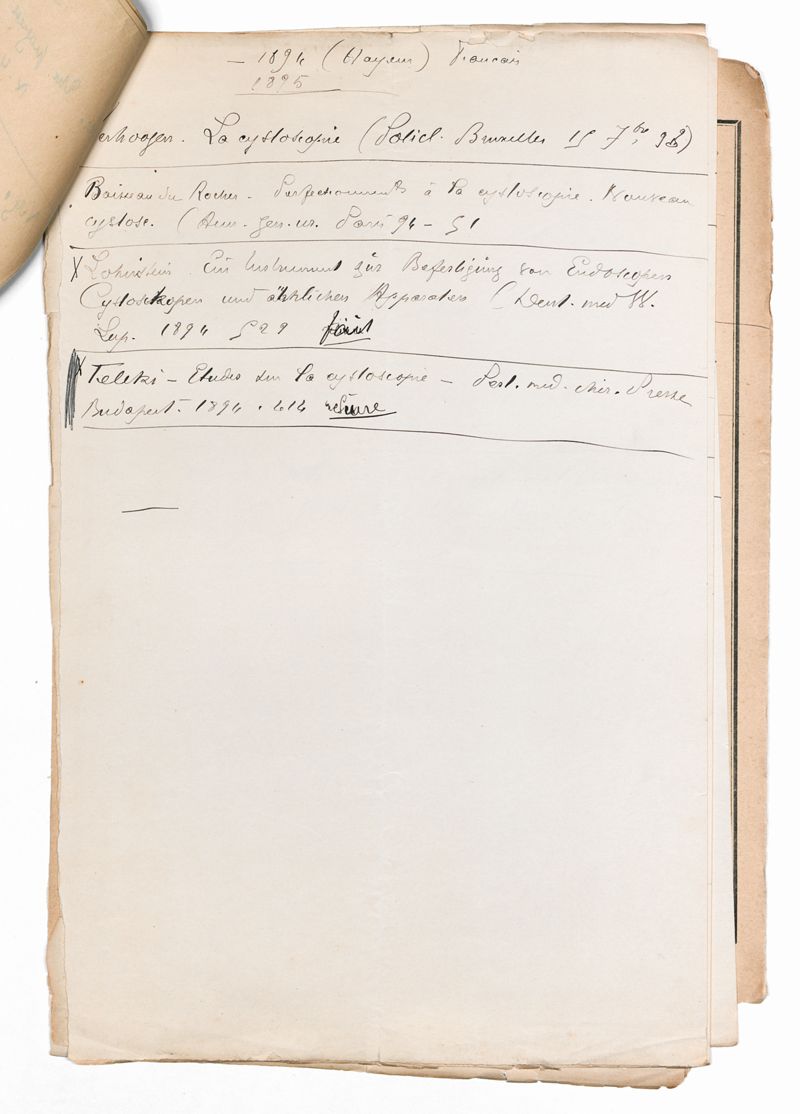 — 1894 (Hayem) Français
1895
erhoogen. La cystoscopie (Policl. Bruxelles 15 7bre 93)
Boisseau du Rocher - Perfectionnements à la cystoscopie. Nouveau
cystosc. (Ann. gen. ur. Paris 94 - 51
X Lohnstein. Ein Instrument zur Befestigung von Endoskopen
Cystoskopen und ähnlichen Apparaten (Deut. med W.
Lep. 1894 529
X Teleki - Etudes sur la cystoscopie - Pest. med. chir. Presse
Budapest. 1894. 414